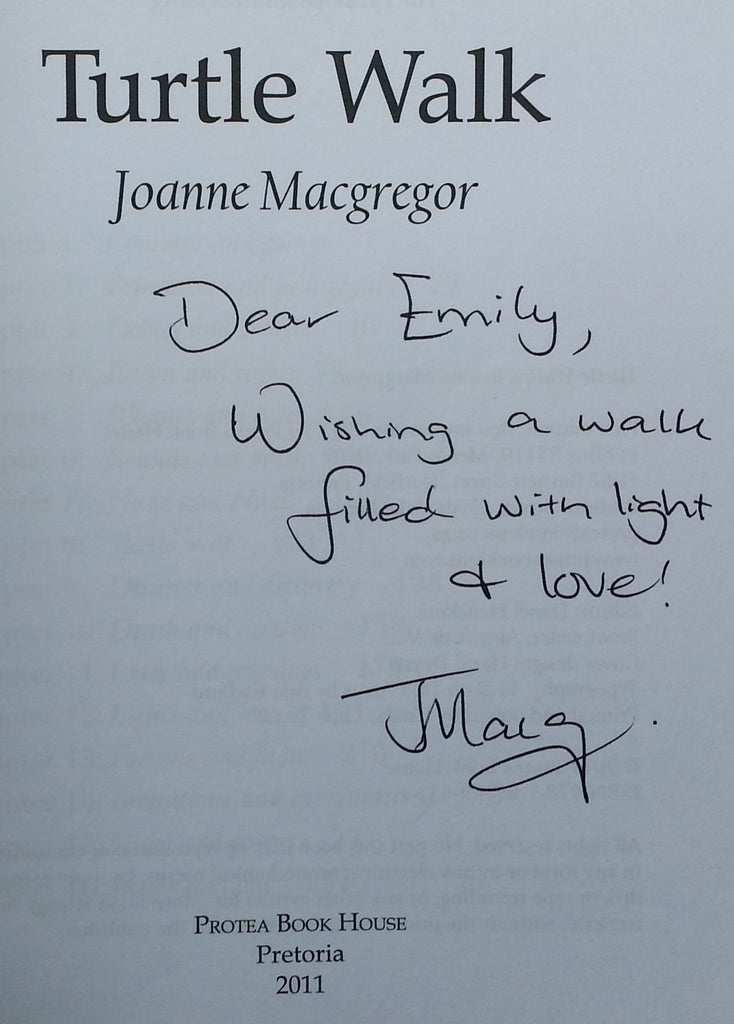 Turtle Walk
Joanne Macgregor
Dear Emily,
Wishing a walk
filled with light
& love!
JMacg.
PROTEA BOOK HOUSE
Pretoria
2011